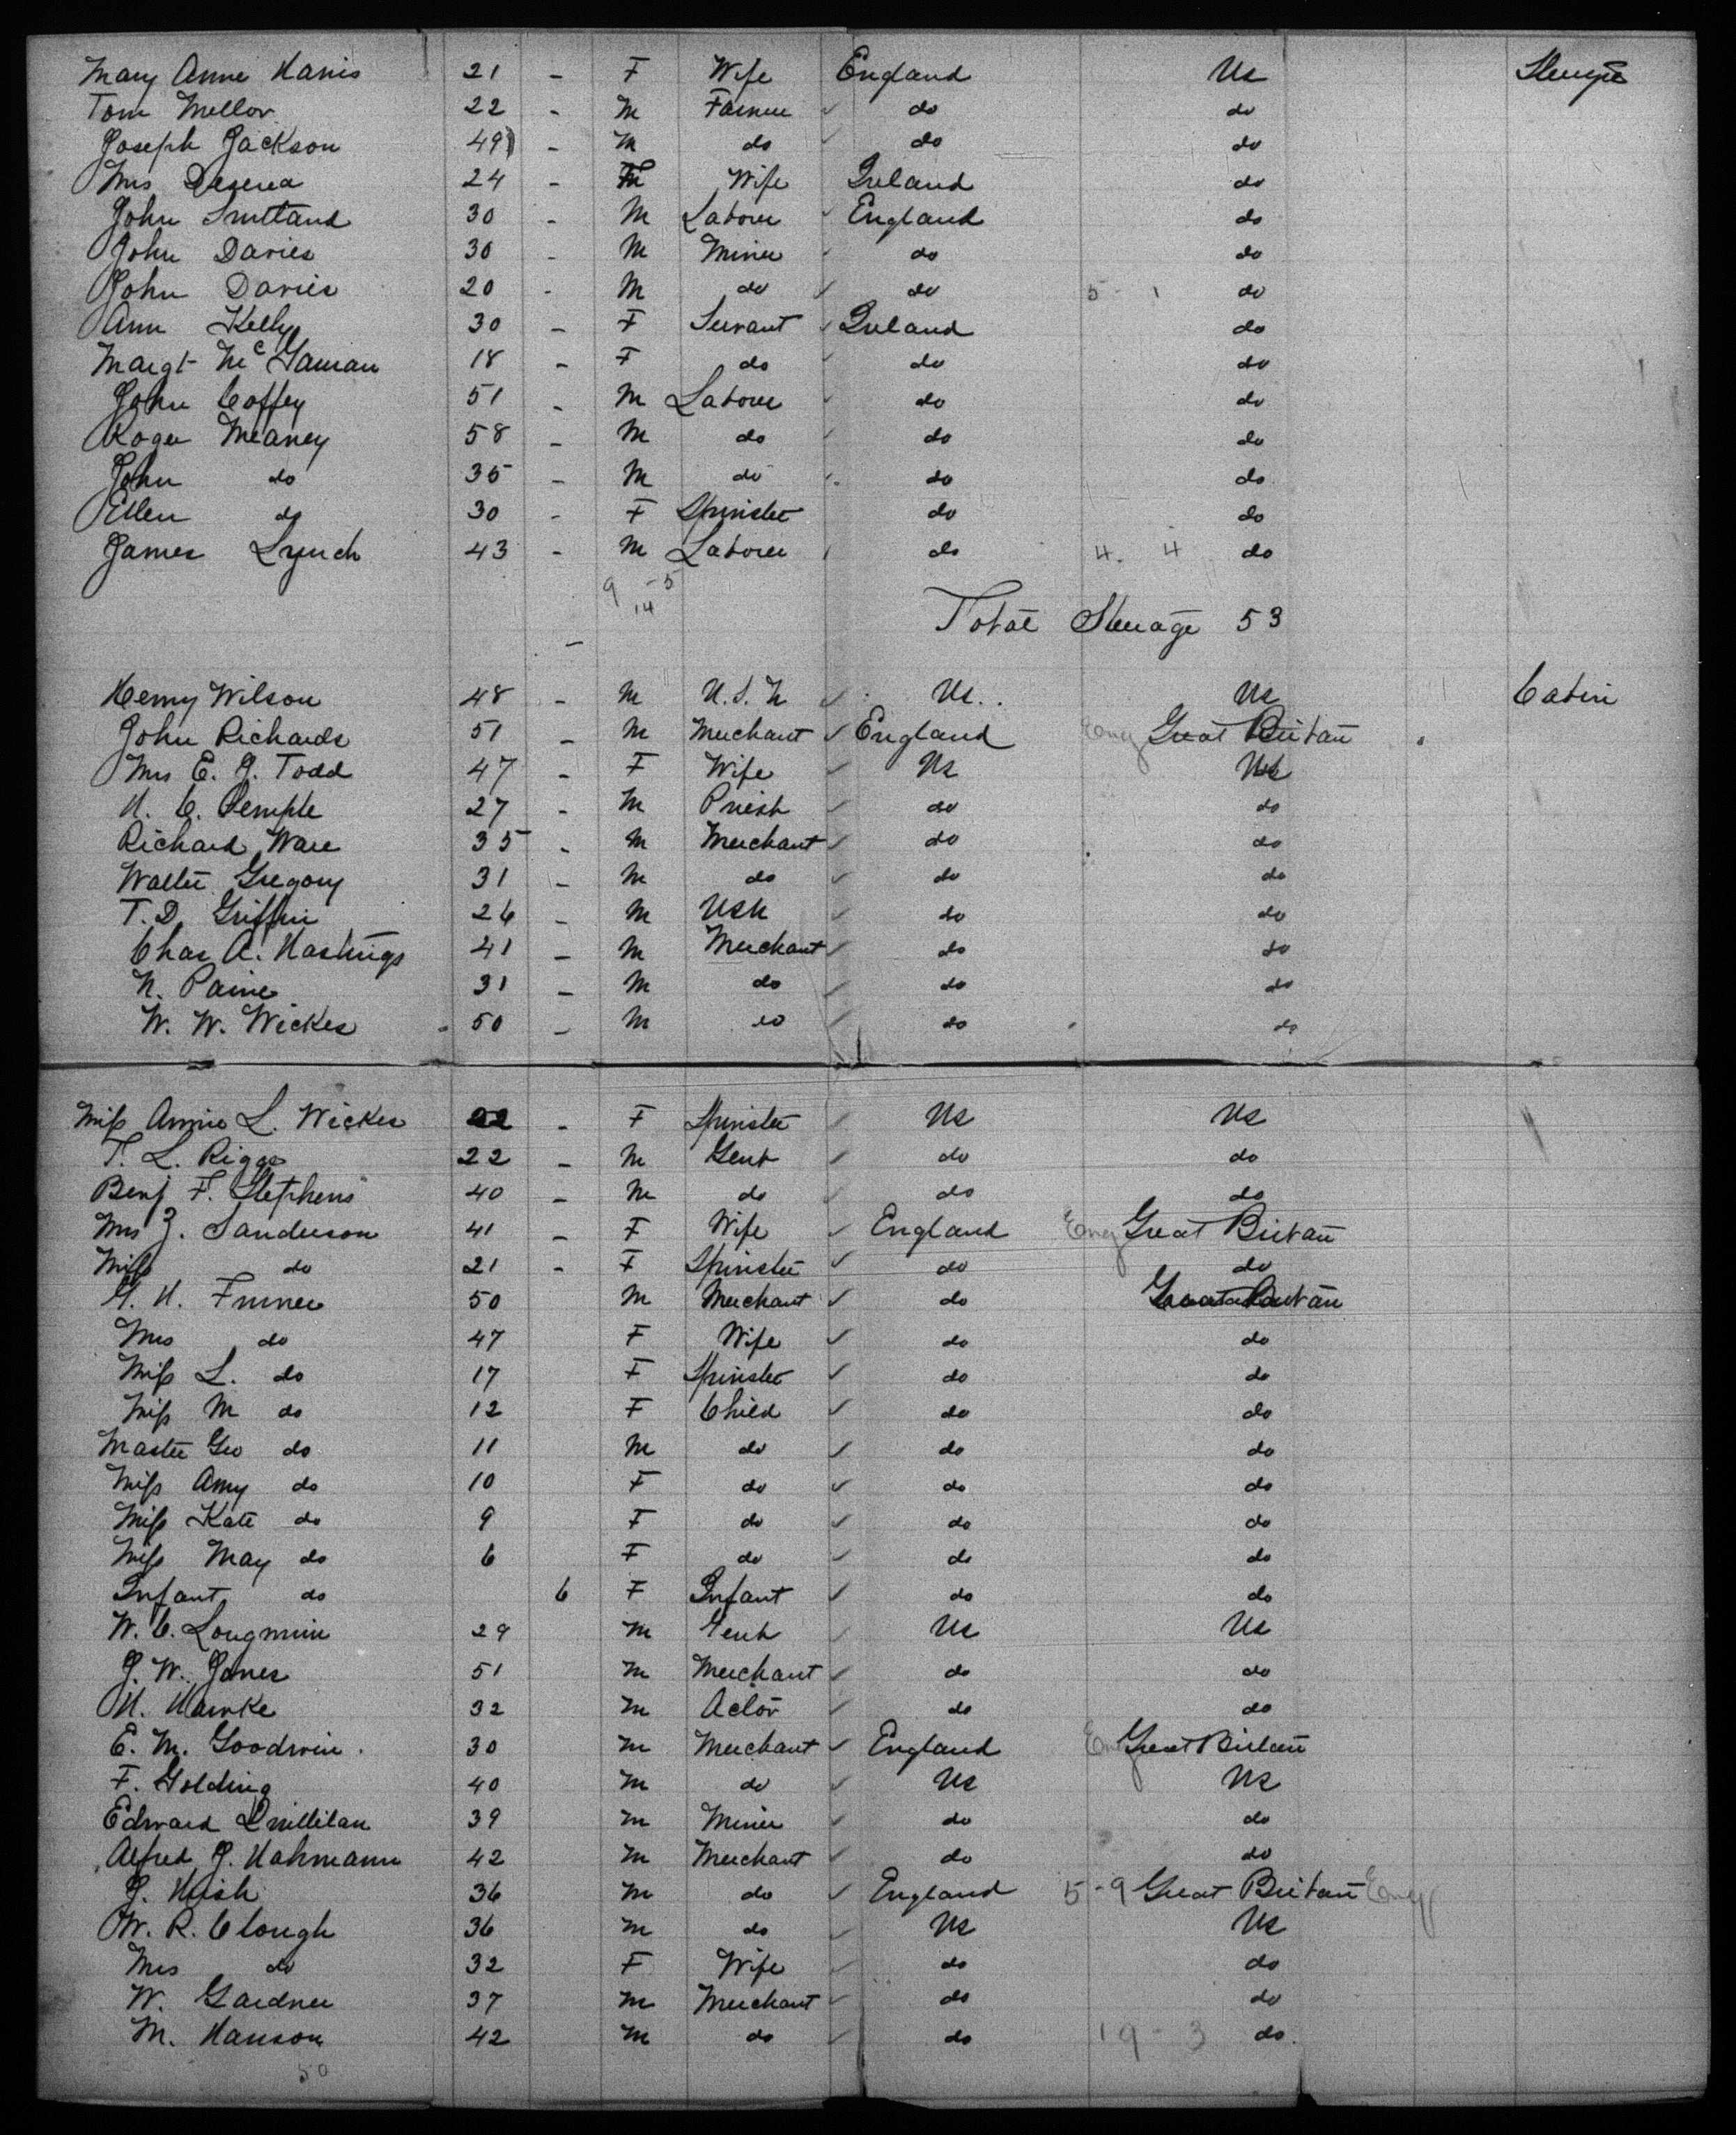 Mary Anne Harris 21 - F Wife England Us Steerage
Tom Mellor 22 - M Farmer do do
Joseph Jackson 49 - M do do do
Mrs 24 - F Wife Ireland do
John 30 - M Laborer England do
John Davies 30 - M Miner do do
John Davies 20 - M do do 5 - 1 do
Ann Kelly 30 - F Servant Ireland do
Margt Mc 18 - F do do do
John Coffey 51 - M Laborer do do
Roger Meaney 58 - M do do do
John do 35 - M do do do
Ellen do 30 - F Spinster do do
James Lynch 43 - M Laborer do 4. 4 do
9 - 5
14
Total Steerage 53
Henry Wilson 48 - M U.S.N Us Us Cabin
John Richards 51 - M Merchant England Eng Great Britain
Mrs E. J. Todd 47 - F Wife Us Us
H. C. Semple 27 - M Priest do do
Richard Ware 35 - M Merchant do do
Walter Gregory 31 - M do do do
T. D. Griffin 26 - M USN do do
Chas A. Hastings 41 - M Merchant do do
N. Paine 31 - M do do do
W. W. Wickes 50 - M do do do
Miss Annie L. Wickes 22 - F Spinster Us Us
T. L. Riggs 22 - M Gent do do
Benj F. Stephens 40 - M do do do
Mrs Z. Sanderson 41 - F Wife England Eng Great Britain
Miss do 21 - F Spinster do do
G. H. 50 M Merchant do Great Britain
Mrs do 47 F Wife do do
Miss L. do 17 F Spinster do do
Miss M do 12 F Child do do
Master Geo do 11 M do do do
Miss Amy do 10 F do do do
Miss Kate do 9 F do do do
Miss May do 6 F do do do
Infant do 6 F Infant do do
W. C. 29 M Gent Us Us
J. W. Jones 51 M Merchant do do
H. Hawke 32 M Actor do do
E. M. Goodwin 30 M Merchant England Eng Great Britain
F. Golding 40 M do Us Us
Edward 39 M Miner do do
Alfred J. Hahmann 42 M Merchant do do
J. 36 M do England 5 - 9 Great Britain Eng
W. R. Clough 36 M do Us Us
Mrs do 32 F Wife do do
W. Gardner 37 M Merchant do do
M. Hanson 42 M do do 19 - 3 do
50